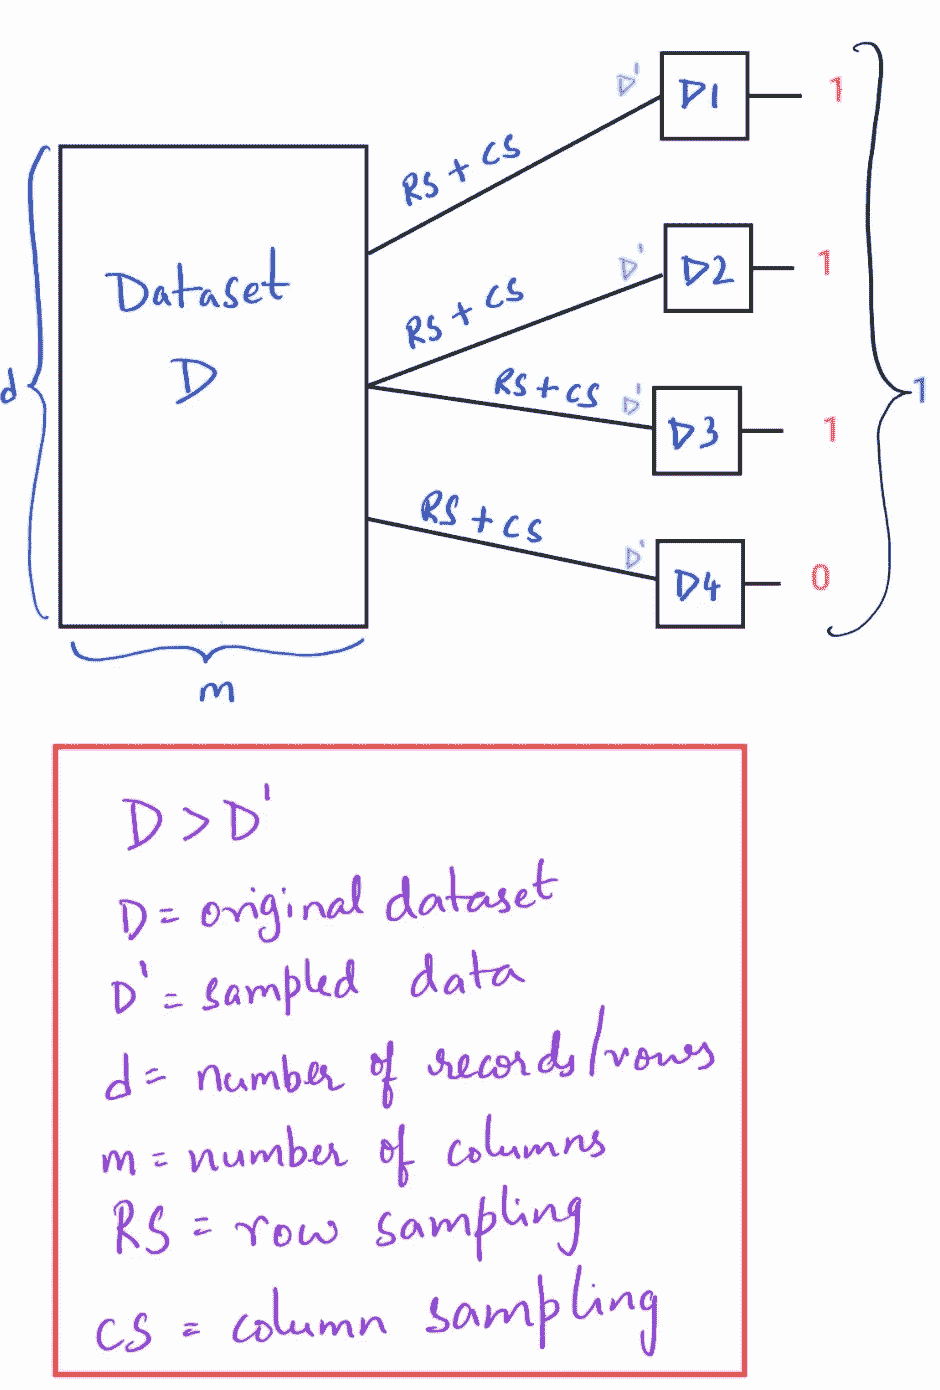 D' D1 1
RS + CS
Dataset
D
d
RS + CS
D' D2 1
RS + CS
D' D3 1
1
RS + CS
D' D4 0
m
D > D'
D = original dataset
D' = sampled data
d = number of records/rows
m = number of columns
RS = row sampling
CS = column sampling